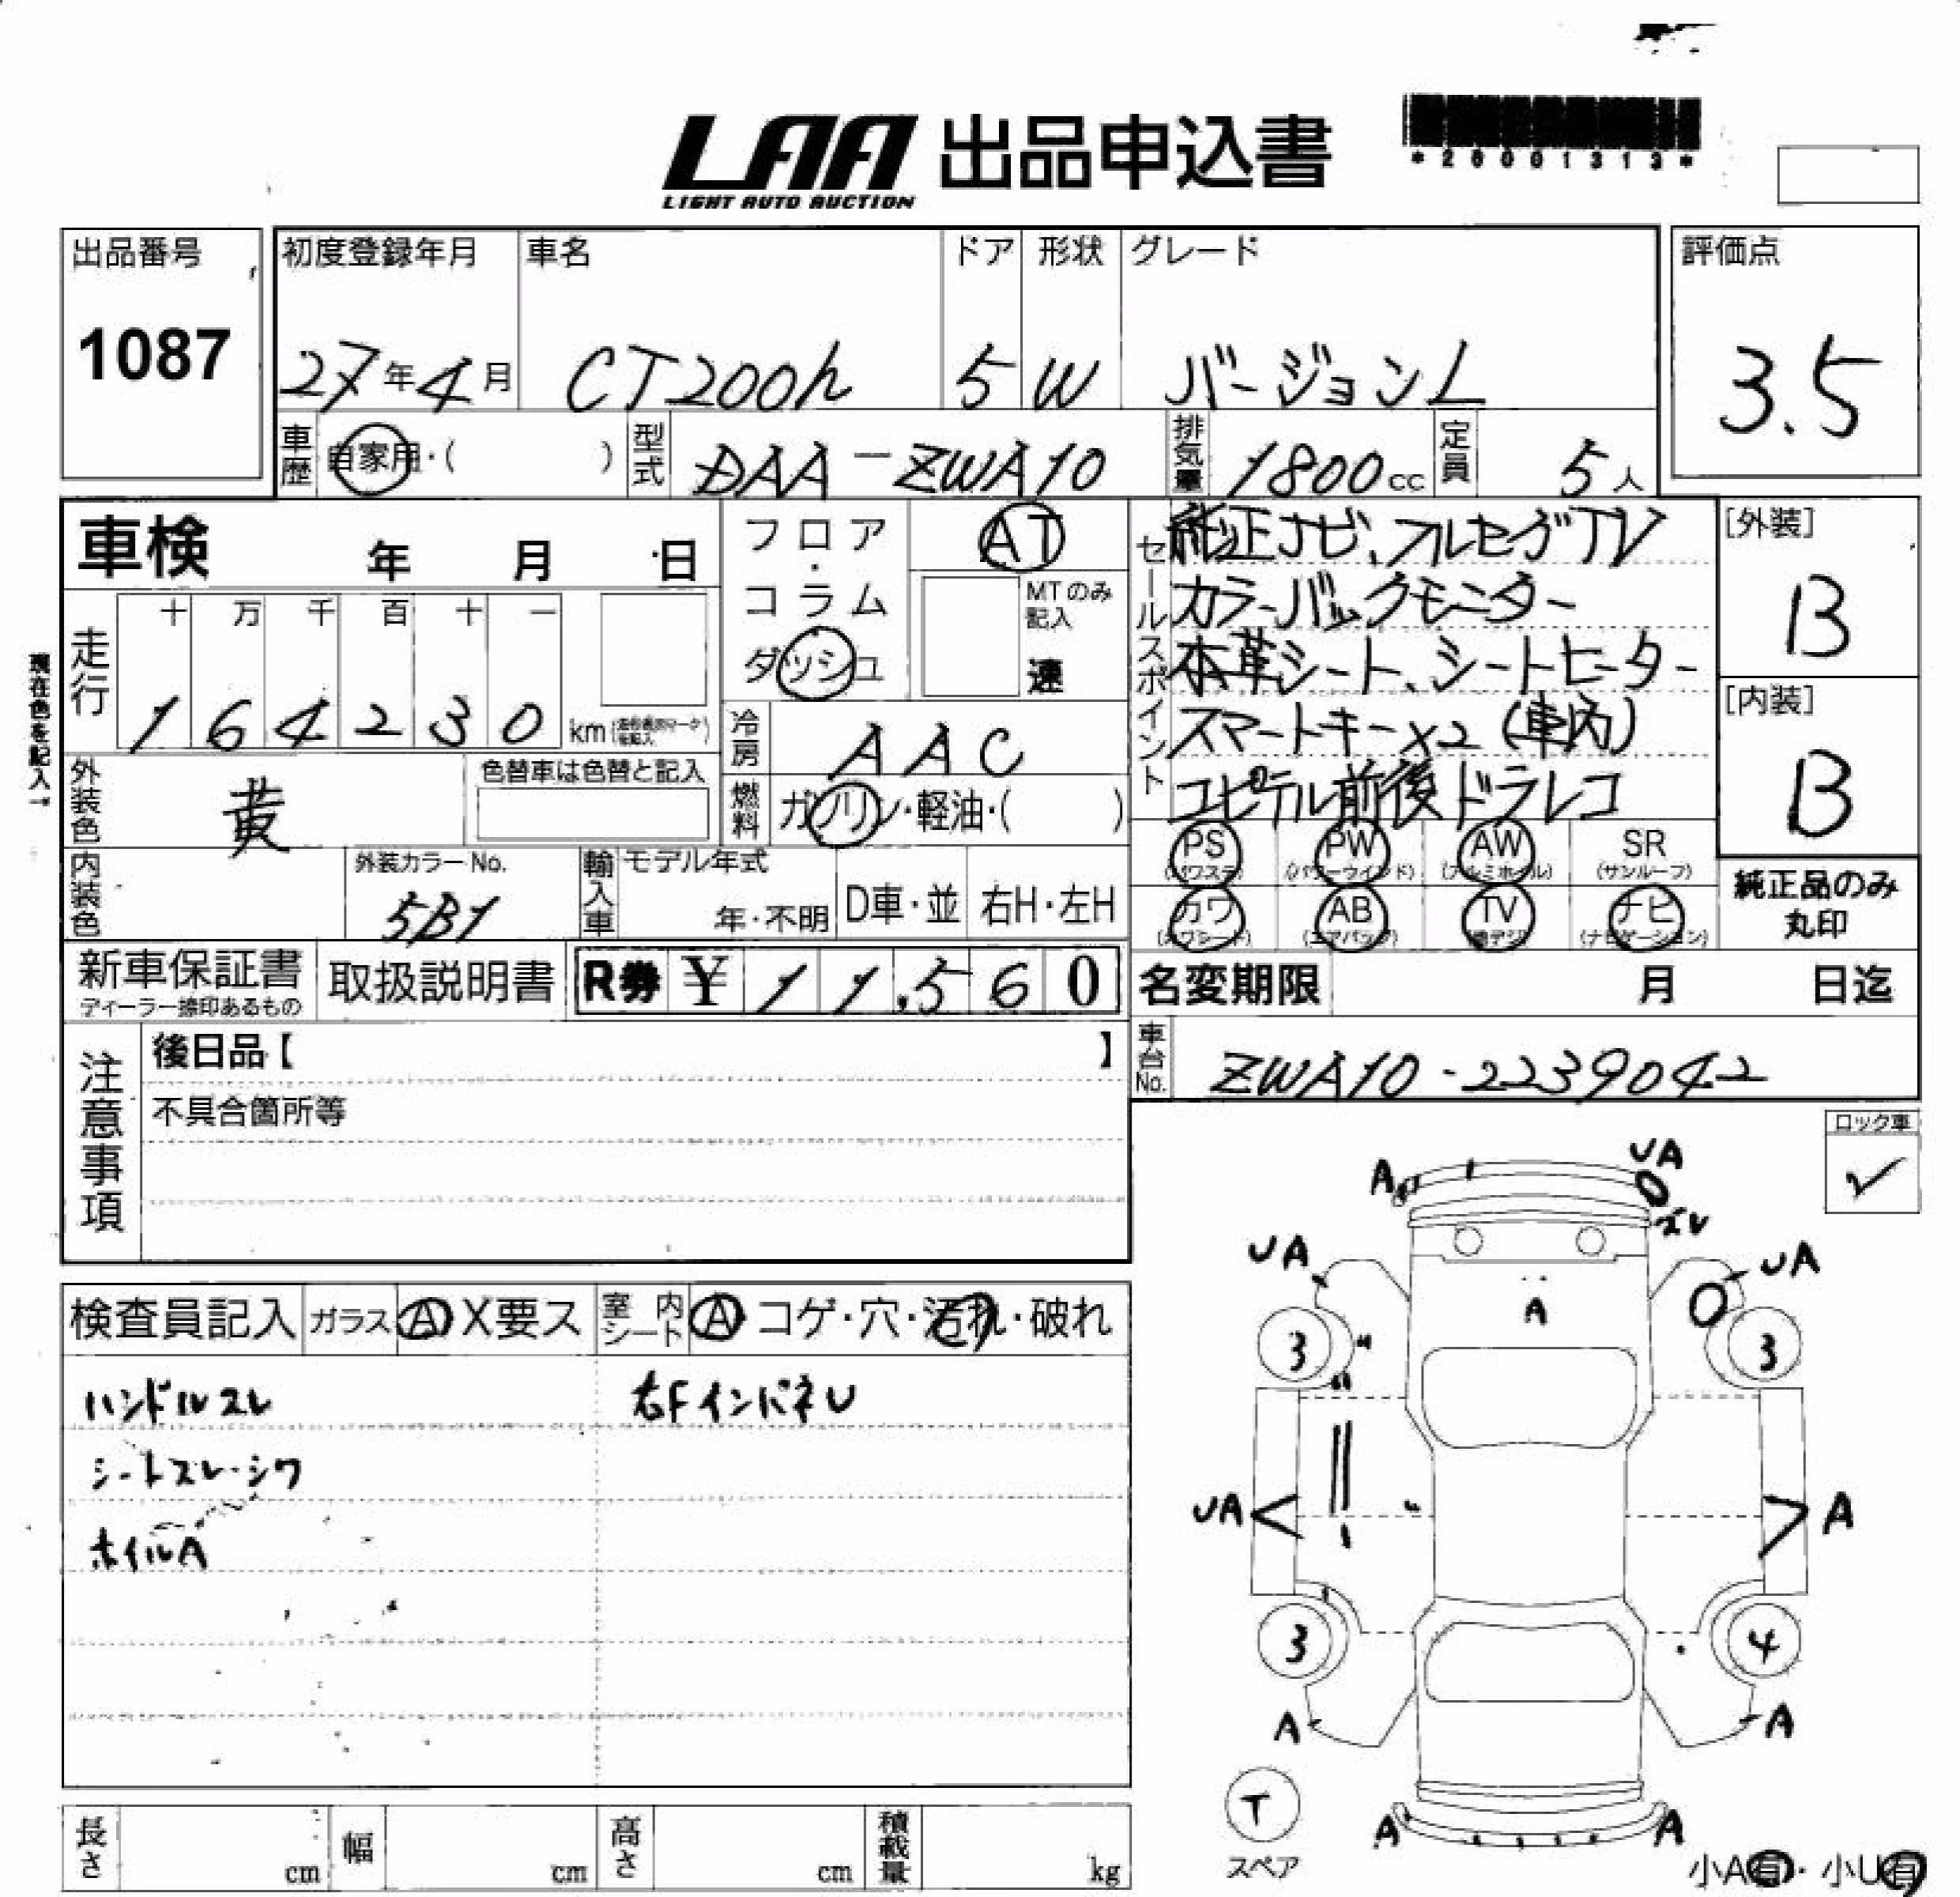 LAA 出品申込書
LIGHT AUTO AUCTION
*20001313*
出品番号
1087
初度登録年月 車名 ドア 形状 グレード
27年4月 CT200h 5 W バージョンL
評価点
3.5
車歴 自家用・( ) 型式 DAA-ZWA10 排気量 1800cc 定員 5人
車検 年 月 日
フロア・コラム
ダッシュ
AT
MTのみ記入
速
セールスポイント
純正ナビ、フルセグTV
カラーバックモニター
本革シート、シートヒーター
スマートキーx2(車内)
コピテル前後ドラレコ
[外装]
B
[内装]
B
現在色を記入→
走行 十 万 千 百 十 一
1 6 4 2 3 0 km
冷房 AAC
外装色 黄 色替車は色替と記入
燃料 ガソリン・軽油・( )
PS (パワステ) PW (パワーウインド) AW (アルミホイル) SR (サンルーフ)
カワ (カワシート) AB (エアバッグ) TV (地デジ) ナビ (ナビゲーション)
純正品のみ
丸印
内装色 外装カラーNo. 5B1 輸入車 モデル年式 年・不明 D車・並 右H・左H
新車保証書 取扱説明書 R券 ¥ 11,560
ディーラー捺印あるもの
名変期限 月 日迄
車台No. ZWA10-2239042
注意事項
後日品【 】
不具合箇所等
ロック車
✓
検査員記入 ガラス A X要ス 室内シート A コゲ・穴・汚れ・破れ
ハンドルスレ 右FインパネU
シートスレ・シワ
ホイルA
A UA
ズレ
UA UA
A
3 3
UA A
3 4
A A
T
スペア
A A
小A有・小U有
長さ cm 幅 cm 高さ cm 積載量 kg